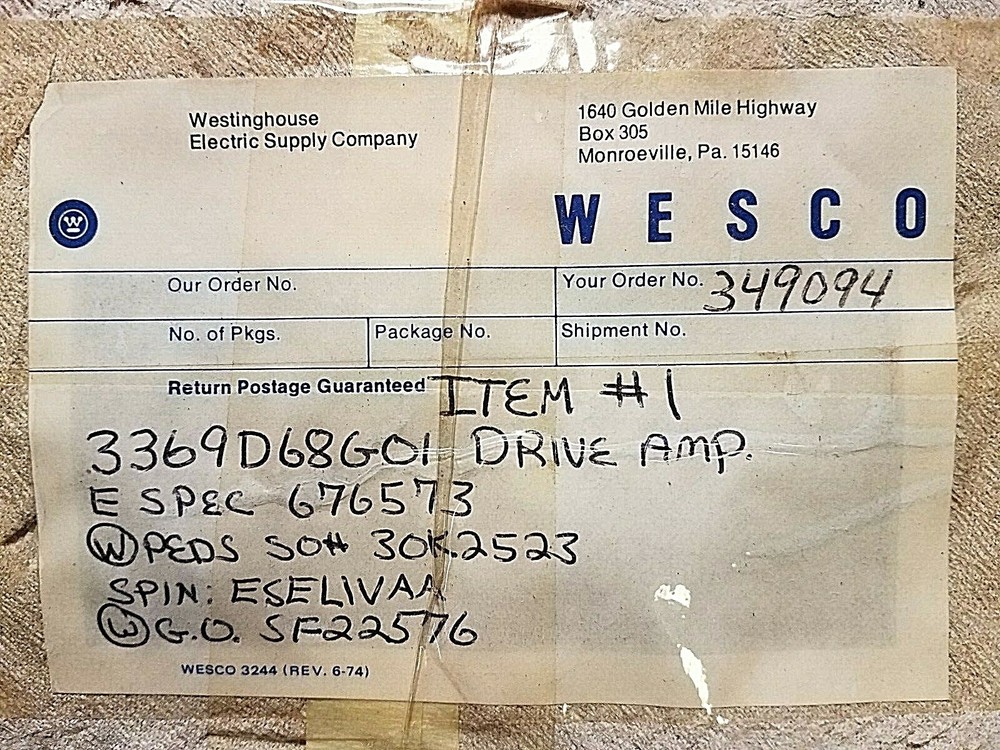 Westinghouse
Electric Supply Company
1640 Golden Mile Highway
Box 305
Monroeville, Pa. 15146
W
WESCO
Our Order No.
Your Order No. 349094
No. of Pkgs.
Package No.
Shipment No.
Return Postage Guaranteed ITEM #1
3369D68G01 DRIVE AMP.
E SPEC 676573
W PEDS SO# 30K2523
SPIN: ESELIVAA
W G.O. SF22576
WESCO 3244 (REV. 6-74)